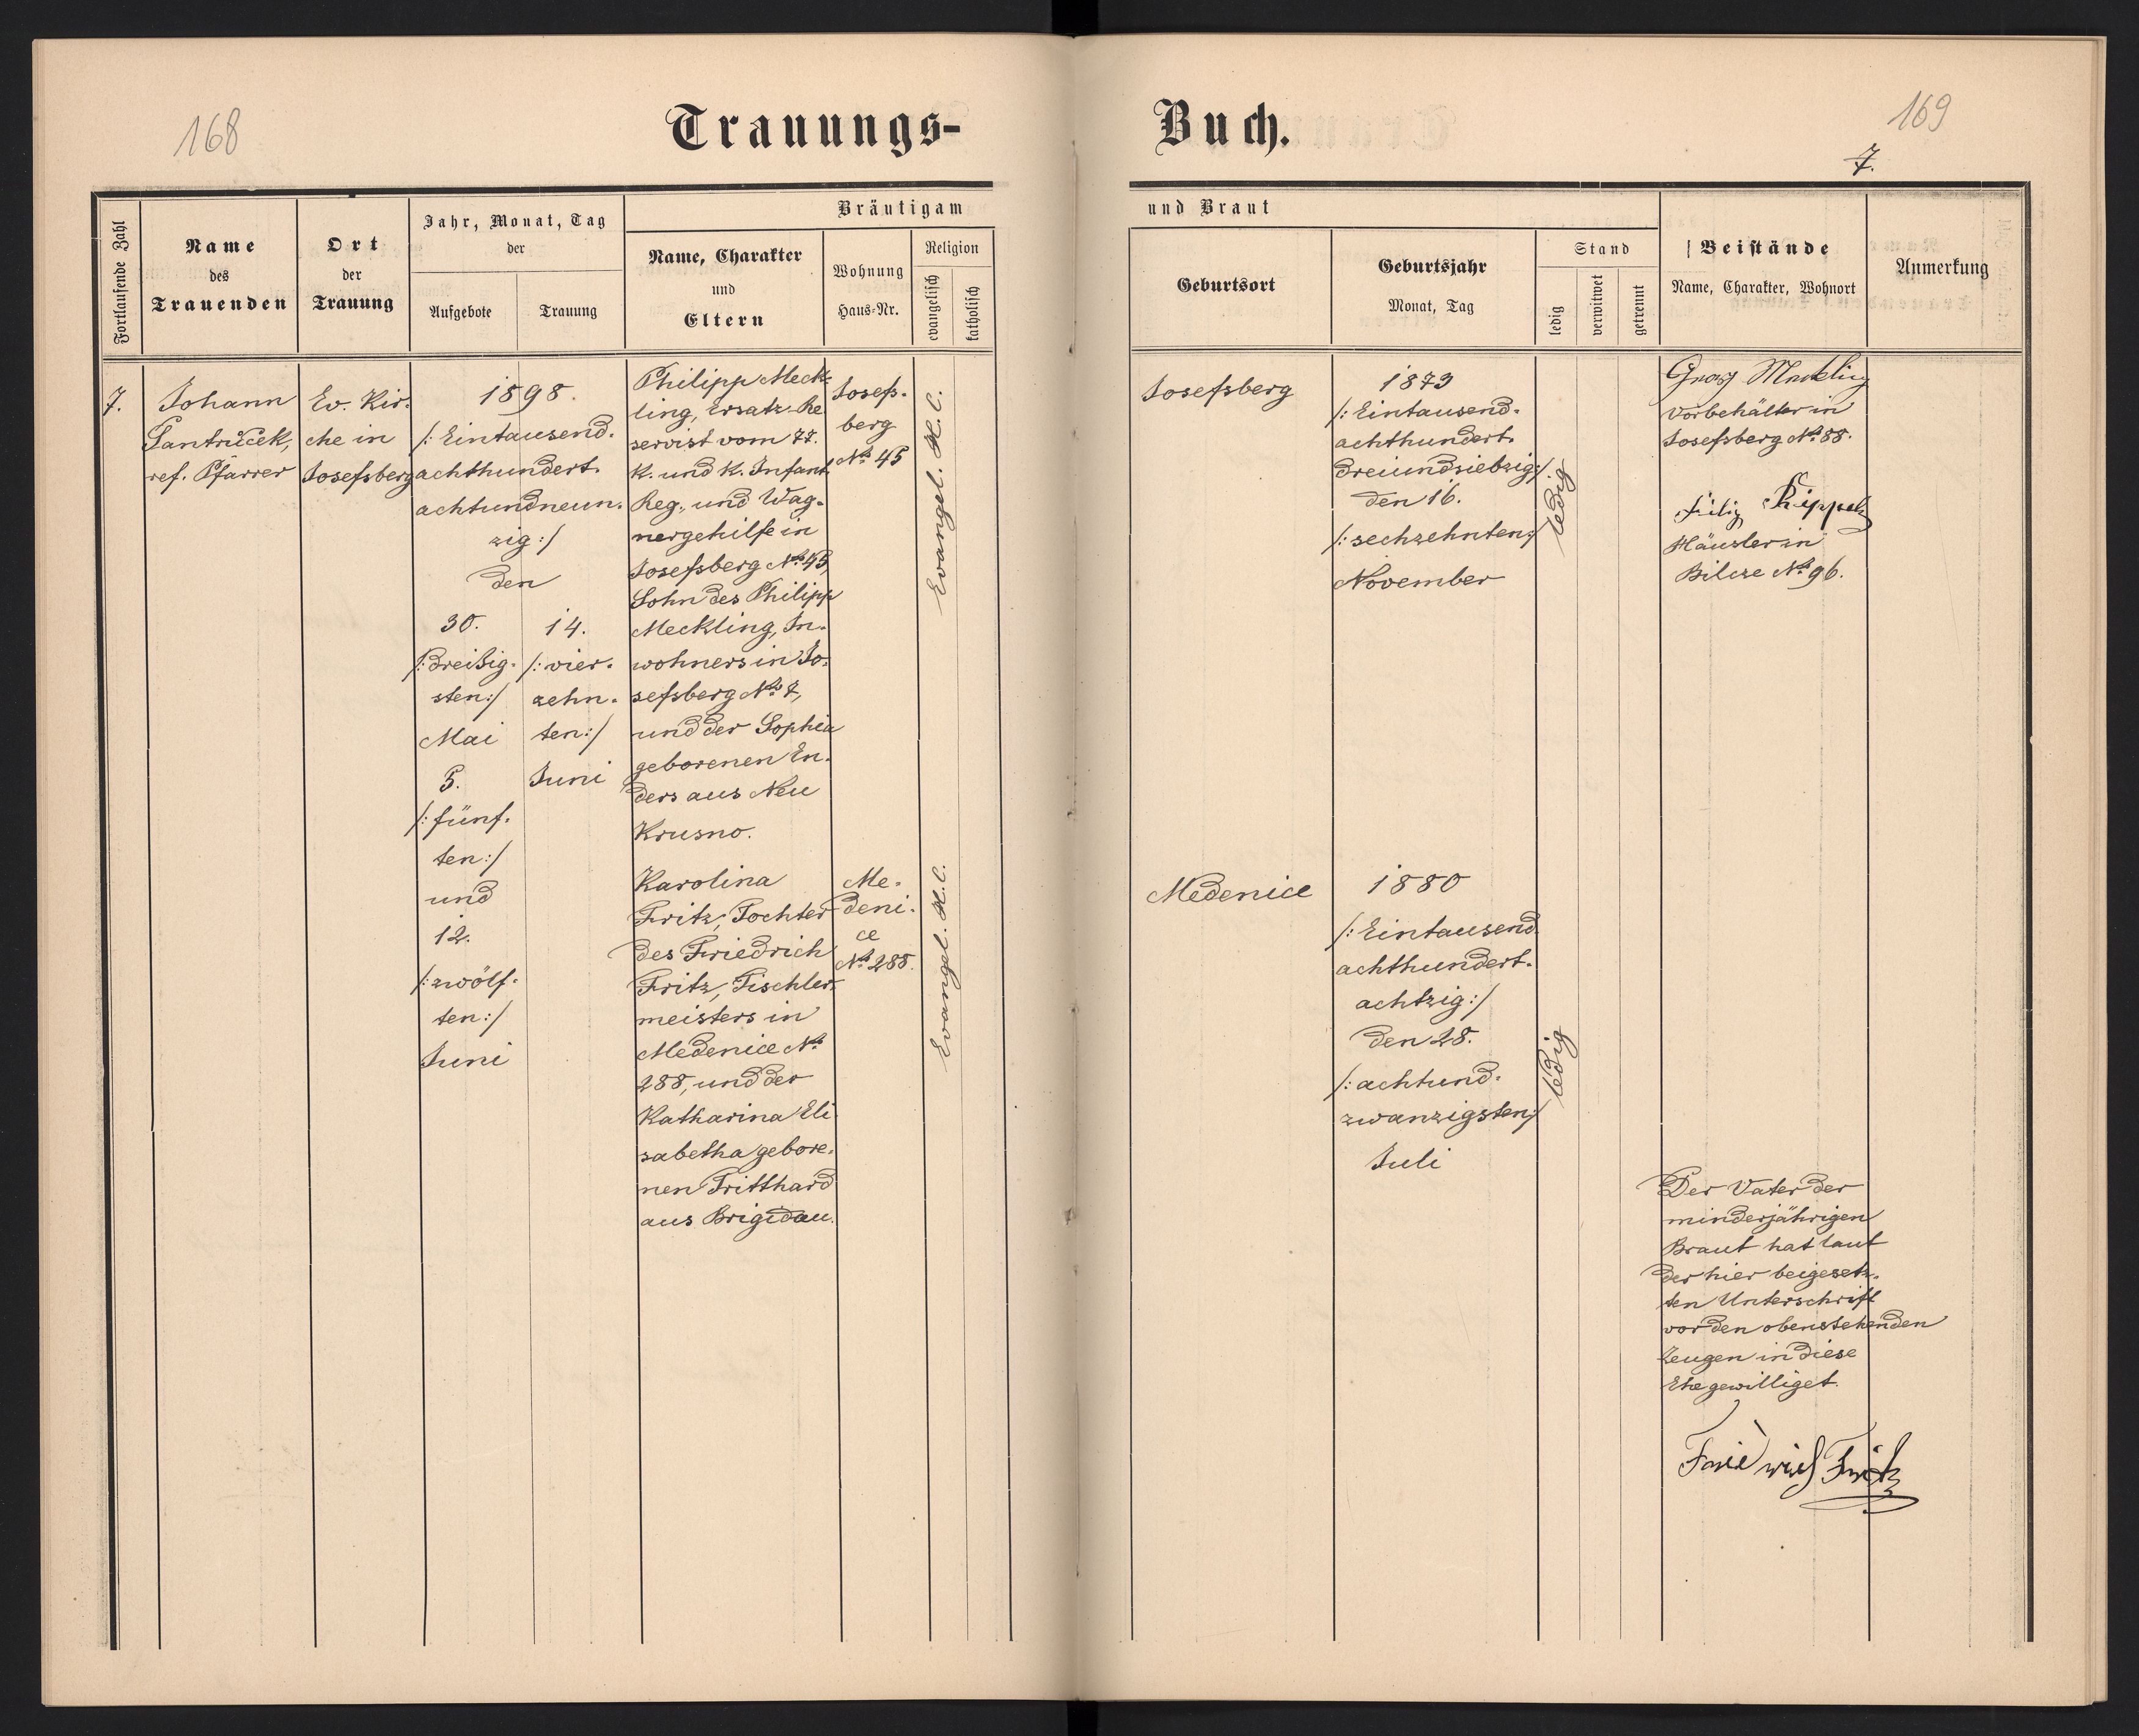 168
Trauungs-
Fortlaufende Zahl
Name
des
Trauenden
Ort
der
Trauung
Jahr, Monat, Tag
der
Aufgebote
Trauung
Bräutigam
Name, Charakter
und
Eltern
Wohnung
Haus-Nr.
Religion
evangelisch
katholisch
7.
Johann
Jantrůček,
ref. Pfarrer
Ev. Kir-
che in
Josefsberg
1898.
/: Eintausend-
achthundert-
achtundneun-
zig :/
den
30.
/: dreißig-
sten :/
Mai
5.
/: fünf-
ten :/
und
12.
/: zwölf-
ten :/
Juni
14.
/: vier-
zehn-
ten :/
Juni
Philipp Meck-
ling, Ersatz-Re
servist vom 77.
K. und K. Infant.
Reg., und Wag-
nergehilfe in
Josefsberg No 45,
Sohn des Philipp
Meckling, In-
wohners in Jo-
sefsberg No 7,
und der Sophia
geborenen En-
ders aus Neu
Krusno.
Josefs-
berg
No 45
Evangel. H. C.
Karolina
Fritz, Tochter
des Friedrich
Fritz, Tischler-
meisters in
Medenice No
288, und der
Katharina Eli
sabetha gebore-
nen Tritthard
aus Brigidau.
Me-
deni-
ce
No 288.
Evangel. H. C.
169
7.
Buch.
und Braut
Geburtsort
Geburtsjahr
Monat, Tag
Stand
ledig
verwitwet
getrennt
Beistände
Name, Charakter, Wohnort
Anmerkung
Josefsberg
1873
/: Eintausend-
achthundert-
dreiundsiebzig :/
den 16.
/: sechzehnten :/
November
ledig
Meckling
Vorbehälter in
Josefsberg No 88.
Filip Rippel
Häusler in
Bilcze No 96.
Medenice
1880
/: Eintausend
achthundert-
achtzig :/
den 28.
/: achtund-
zwanzigsten :/
Juli
ledig
Der Vater der
minderjährigen
Braut hat laut
der hier beigesetz-
ten Unterschrift
vor den obenstehenden
Zeugen in diese
Ehe gewilliget.
Friedrich Fritz